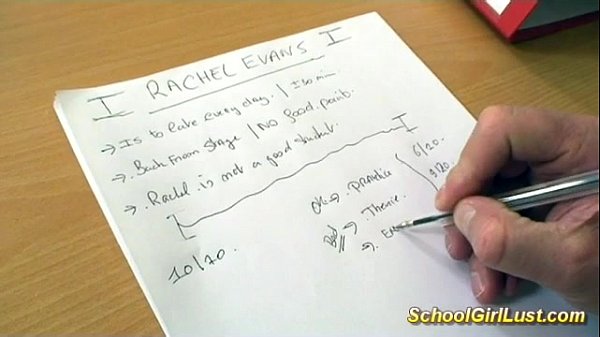 I RACHEL EVANS I
→ Is to late every day. / 130 min.
→ Back From Stage / No Good point.
→ Rachel is not a good student.
10/20.
→ Practice 6/20
→ Theorie. 9/20
→
SchoolGirlLust.com